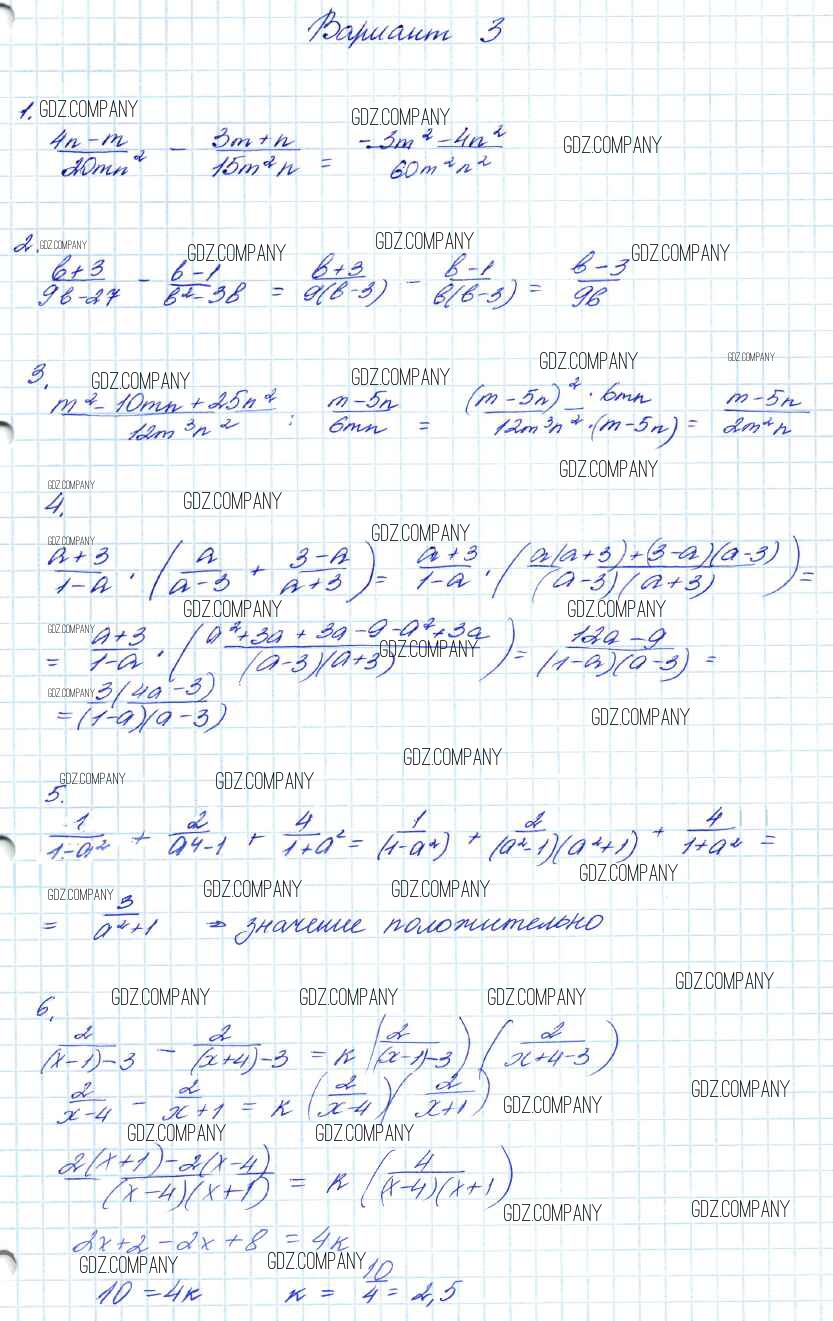 Вариант 3
1. GDZ.COMPANY GDZ.COMPANY
(4n-m)/(20mn²) - (3m+n)/(15m²n) = (-3m²-4n²)/(60m²n²) GDZ.COMPANY
2. GDZ.COMPANY GDZ.COMPANY GDZ.COMPANY GDZ.COMPANY
(b+3)/(9b-27) - (b-1)/(b²-3b) = (b+3)/(9(b-3)) - (b-1)/(b(b-3)) = (b-3)/(9b)
3. GDZ.COMPANY GDZ.COMPANY GDZ.COMPANY GDZ.COMPANY
(m²-10mn+25n²)/(12m³n²) : (m-5n)/(6mn) = ((m-5n)²·6mn)/(12m³n²·(m-5n)) = (m-5n)/(2m²n)
GDZ.COMPANY
GDZ.COMPANY GDZ.COMPANY
4.
GDZ.COMPANY GDZ.COMPANY
(a+3)/(1-a) · (a/(a-3) + (3-a)/(a+3)) = (a+3)/(1-a) · ((a(a+3)+(3-a)(a-3))/((a-3)(a+3))) =
GDZ.COMPANY GDZ.COMPANY GDZ.COMPANY
= (a+3)/(1-a) · ((a²+3a+3a-9-a²+3a)/((a-3)(a+3))) = (12a-9)/((1-a)(a-3)) =
GDZ.COMPANY
GDZ.COMPANY
= (3(4a-3))/((1-a)(a-3))
GDZ.COMPANY
GDZ.COMPANY
5. GDZ.COMPANY GDZ.COMPANY
1/(1-a²) + 2/(a⁴-1) + 4/(1+a²) = 1/(1-a²) + 2/((a²-1)(a²+1)) + 4/(1+a²) =
GDZ.COMPANY
GDZ.COMPANY GDZ.COMPANY GDZ.COMPANY
= 3/(a²+1) ⇒ значение положительно
GDZ.COMPANY
6. GDZ.COMPANY GDZ.COMPANY GDZ.COMPANY
2/((x-1)-3) - 2/((x+4)-3) = k (2/((x-1)-3)) (2/(x+4-3))
2/(x-4) - 2/(x+1) = k (2/(x-4)) (2/(x+1)) GDZ.COMPANY GDZ.COMPANY
GDZ.COMPANY GDZ.COMPANY
(2(x+1)-2(x-4))/((x-4)(x+1)) = k (4/((x-4)(x+1)))
GDZ.COMPANY GDZ.COMPANY
2x+2-2x+8 = 4k
GDZ.COMPANY GDZ.COMPANY
10 = 4k k = 10/4 = 2,5